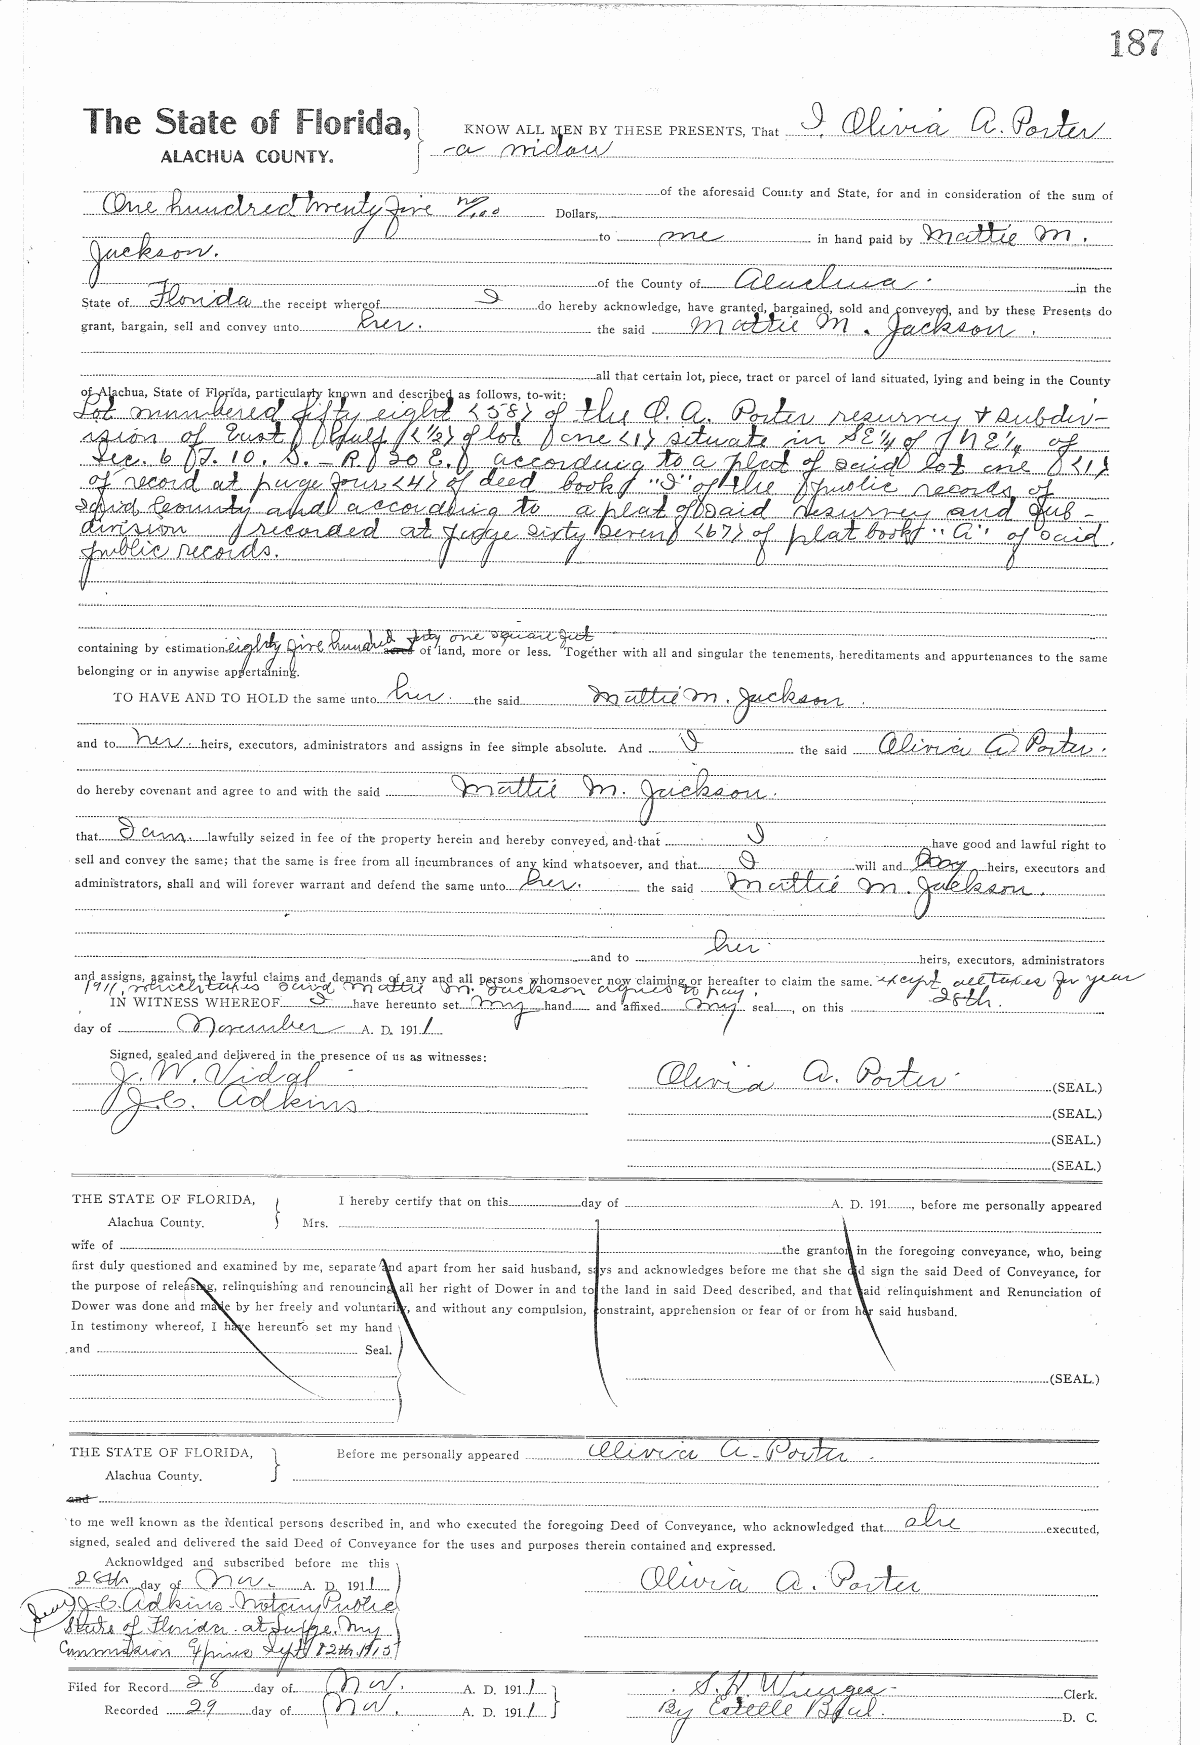 187
The State of Florida, KNOW ALL MEN BY THESE PRESENTS, That I, Olivia A. Porter
ALACHUA COUNTY. a widow
of the aforesaid County and State, for and in consideration of the sum of
One hundred twenty five no/100 Dollars,
to me in hand paid by Mattie M.
Jackson.
of the County of Alachua in the
State of Florida the receipt whereof I do hereby acknowledge, have granted, bargained, sold and conveyed, and by these Presents do
grant, bargain, sell and convey unto her. the said Mattie M. Jackson.
all that certain lot, piece, tract or parcel of land situated, lying and being in the County
of Alachua, State of Florida, particularly known and described as follows, to-wit:
Lot numbered fifty eight <58> of the O. A. Porter resurvey & subdiv-
ision of East Half <½> of lot one <1> situate in SE¼ of NE¼ of
Sec. 6 T. 10. S. - R. 20 E. according to a plat of said lot one <1>
of record at page four <4> of deed book "I" of the public records of
said County and according to a plat of said resurvey and sub-
division recorded at page sixty seven <67> of plat book "A" of said
public records.
containing by estimation eighty five hundred fifty one square feet acres of land, more or less. Together with all and singular the tenements, hereditaments and appurtenances to the same
belonging or in anywise appertaining.
TO HAVE AND TO HOLD the same unto her. the said Mattie M. Jackson.
and to her. heirs, executors, administrators and assigns in fee simple absolute. And I the said Olivia A Porter.
do hereby covenant and agree to and with the said Mattie M. Jackson.
that I am lawfully seized in fee of the property herein and hereby conveyed, and that I have good and lawful right to
sell and convey the same; that the same is free from all incumbrances of any kind whatsoever, and that I will and my heirs, executors and
administrators, shall and will forever warrant and defend the same unto her. the said Mattie M. Jackson.
and to her heirs, executors, administrators
and assigns, against the lawful claims and demands of any and all persons whomsoever now claiming or hereafter to claim the same. except all taxes for year
1911, which taxes said Mattie M. Jackson agrees to pay.
IN WITNESS WHEREOF I have hereunto set my hand and affixed my seal, on this 28th.
day of November A. D. 1911
Signed, sealed and delivered in the presence of us as witnesses:
J. W. Vidal Olivia A. Porter (SEAL.)
J.C. Adkins (SEAL.)
(SEAL.)
(SEAL.)
THE STATE OF FLORIDA, I hereby certify that on this day of A. D. 191 , before me personally appeared
Alachua County. Mrs.
wife of the grantor in the foregoing conveyance, who, being
first duly questioned and examined by me, separate and apart from her said husband, says and acknowledges before me that she did sign the said Deed of Conveyance, for
the purpose of releasing, relinquishing and renouncing all her right of Dower in and to the land in said Deed described, and that said relinquishment and Renunciation of
Dower was done and made by her freely and voluntarily, and without any compulsion, constraint, apprehension or fear of or from her said husband.
In testimony whereof, I have hereunto set my hand
and Seal.
(SEAL.)
THE STATE OF FLORIDA, Before me personally appeared Olivia A. Porter.
Alachua County.
and
to me well known as the identical persons described in, and who executed the foregoing Deed of Conveyance, who acknowledged that she executed,
signed, sealed and delivered the said Deed of Conveyance for the uses and purposes therein contained and expressed.
Acknowldged and subscribed before me this
28th day of Nov. A. D. 1911 Olivia A. Porter
J.C. Adkins Notary Public
State of Florida at Large. My
Commission Expires Sept 12th 1915
Filed for Record 28 day of Nov. A. D. 1911 S. H. Wienges Clerk.
Recorded 29 day of Nov. A. D. 1911 By Estelle D. C.